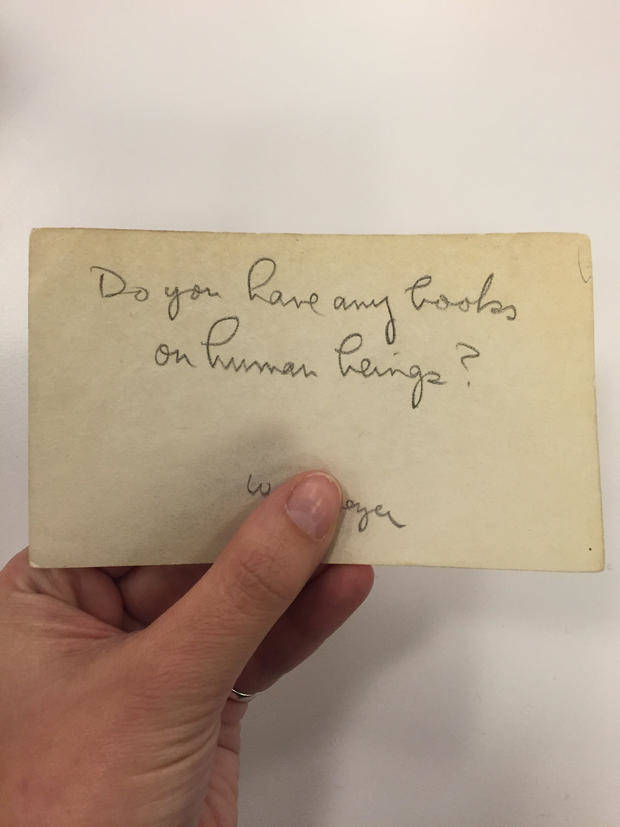 Do you have any books
on human beings?